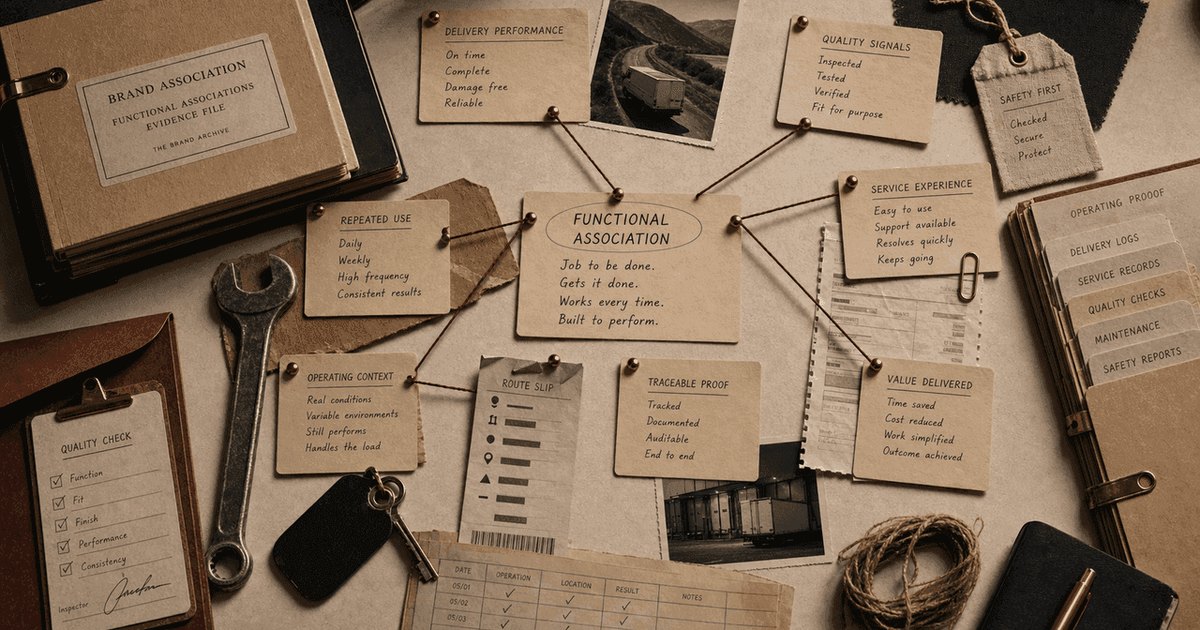 BRAND ASSOCIATION
FUNCTIONAL ASSOCIATIONS
EVIDENCE FILE
THE BRAND ARCHIVE
DELIVERY PERFORMANCE
On time
Complete
Damage free
Reliable
QUALITY SIGNALS
Inspected
Tested
Verified
Fit for purpose
SAFETY FIRST
Checked
Secure
Protect
REPEATED USE
Daily
Weekly
High frequency
Consistent results
FUNCTIONAL
ASSOCIATION
Job to be done.
Gets it done.
Works every time.
Built to perform.
SERVICE EXPERIENCE
Easy to use
Support available
Resolves quickly
Keeps going
OPERATING PROOOF
DELIVERY LOGS
SERVICE RECORDS
QUALITY CHECKS
MAINTENANCE
SAFETY REPORTS
OPERATING CONTEXT
Real conditions
Variable environments
Still performs
Handles the load
ROUTE SLIP
TRACEABLE PROOF
Tracked
Documented
Auditable
End to end
VALUE DELIVERED
Time saved
Cost reduced
Work simplified
Outcome achieved
QUALITY CHECK
Function
Fit
Finish
Performance
Consistency
Inspector
DATE OPERATION LOCATION RESULT NOTES
05/01
05/02
05/03